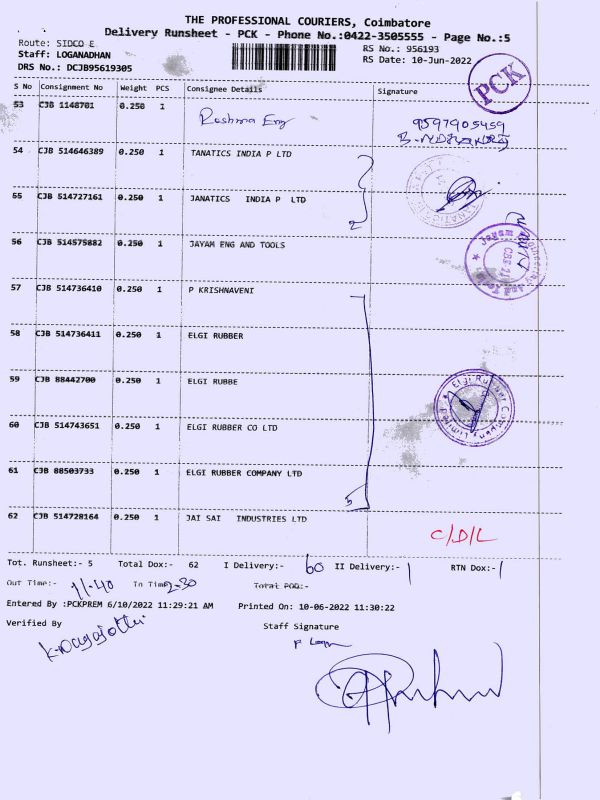 THE PROFESSIONAL COURIERS, Coimbatore
Delivery Runsheet - PCK - Phone No.:0422-3505555 - Page No.:5
Route: SIDCO E
Staff: LOGANADHAN
DRS No.: DCJB95619305
RS No.: 956193
RS Date: 10-Jun-2022
PCK
S No Consignment No Weight PCS Consignee Details Signature
53 CJB 1148701 0.250 1 Reshma Eng 9597905459
54 CJB 514646389 0.250 1 TANATICS INDIA P LTD
55 CJB 514727161 0.250 1 JANATICS INDIA P LTD 2
56 CJB 514575882 0.250 1 JAYAM ENG AND TOOLS
57 CJB 514736410 0.250 1 P KRISHNAVENI
58 CJB 514736411 0.250 1 ELGI RUBBER
59 CJB 88442700 0.250 1 ELGI RUBBE
Elgi Rubber Company Limited
60 CJB 514743651 0.250 1 ELGI RUBBER CO LTD
61 CJB 88503733 0.250 1 ELGI RUBBER COMPANY LTD 5
62 CJB 514728164 0.250 1 JAI SAI INDUSTRIES LTD C/D/L
Tot. Runsheet:- 5 Total Dox:- 62 I Delivery:- 60 II Delivery:- 1 RTN Dox:- 1
Out Time:- 11.40 In Time 2.30 Total POD:-
Entered By :PCKPREM 6/10/2022 11:29:21 AM Printed On: 10-06-2022 11:30:22
Verified By Staff Signature
K. Nagajothi